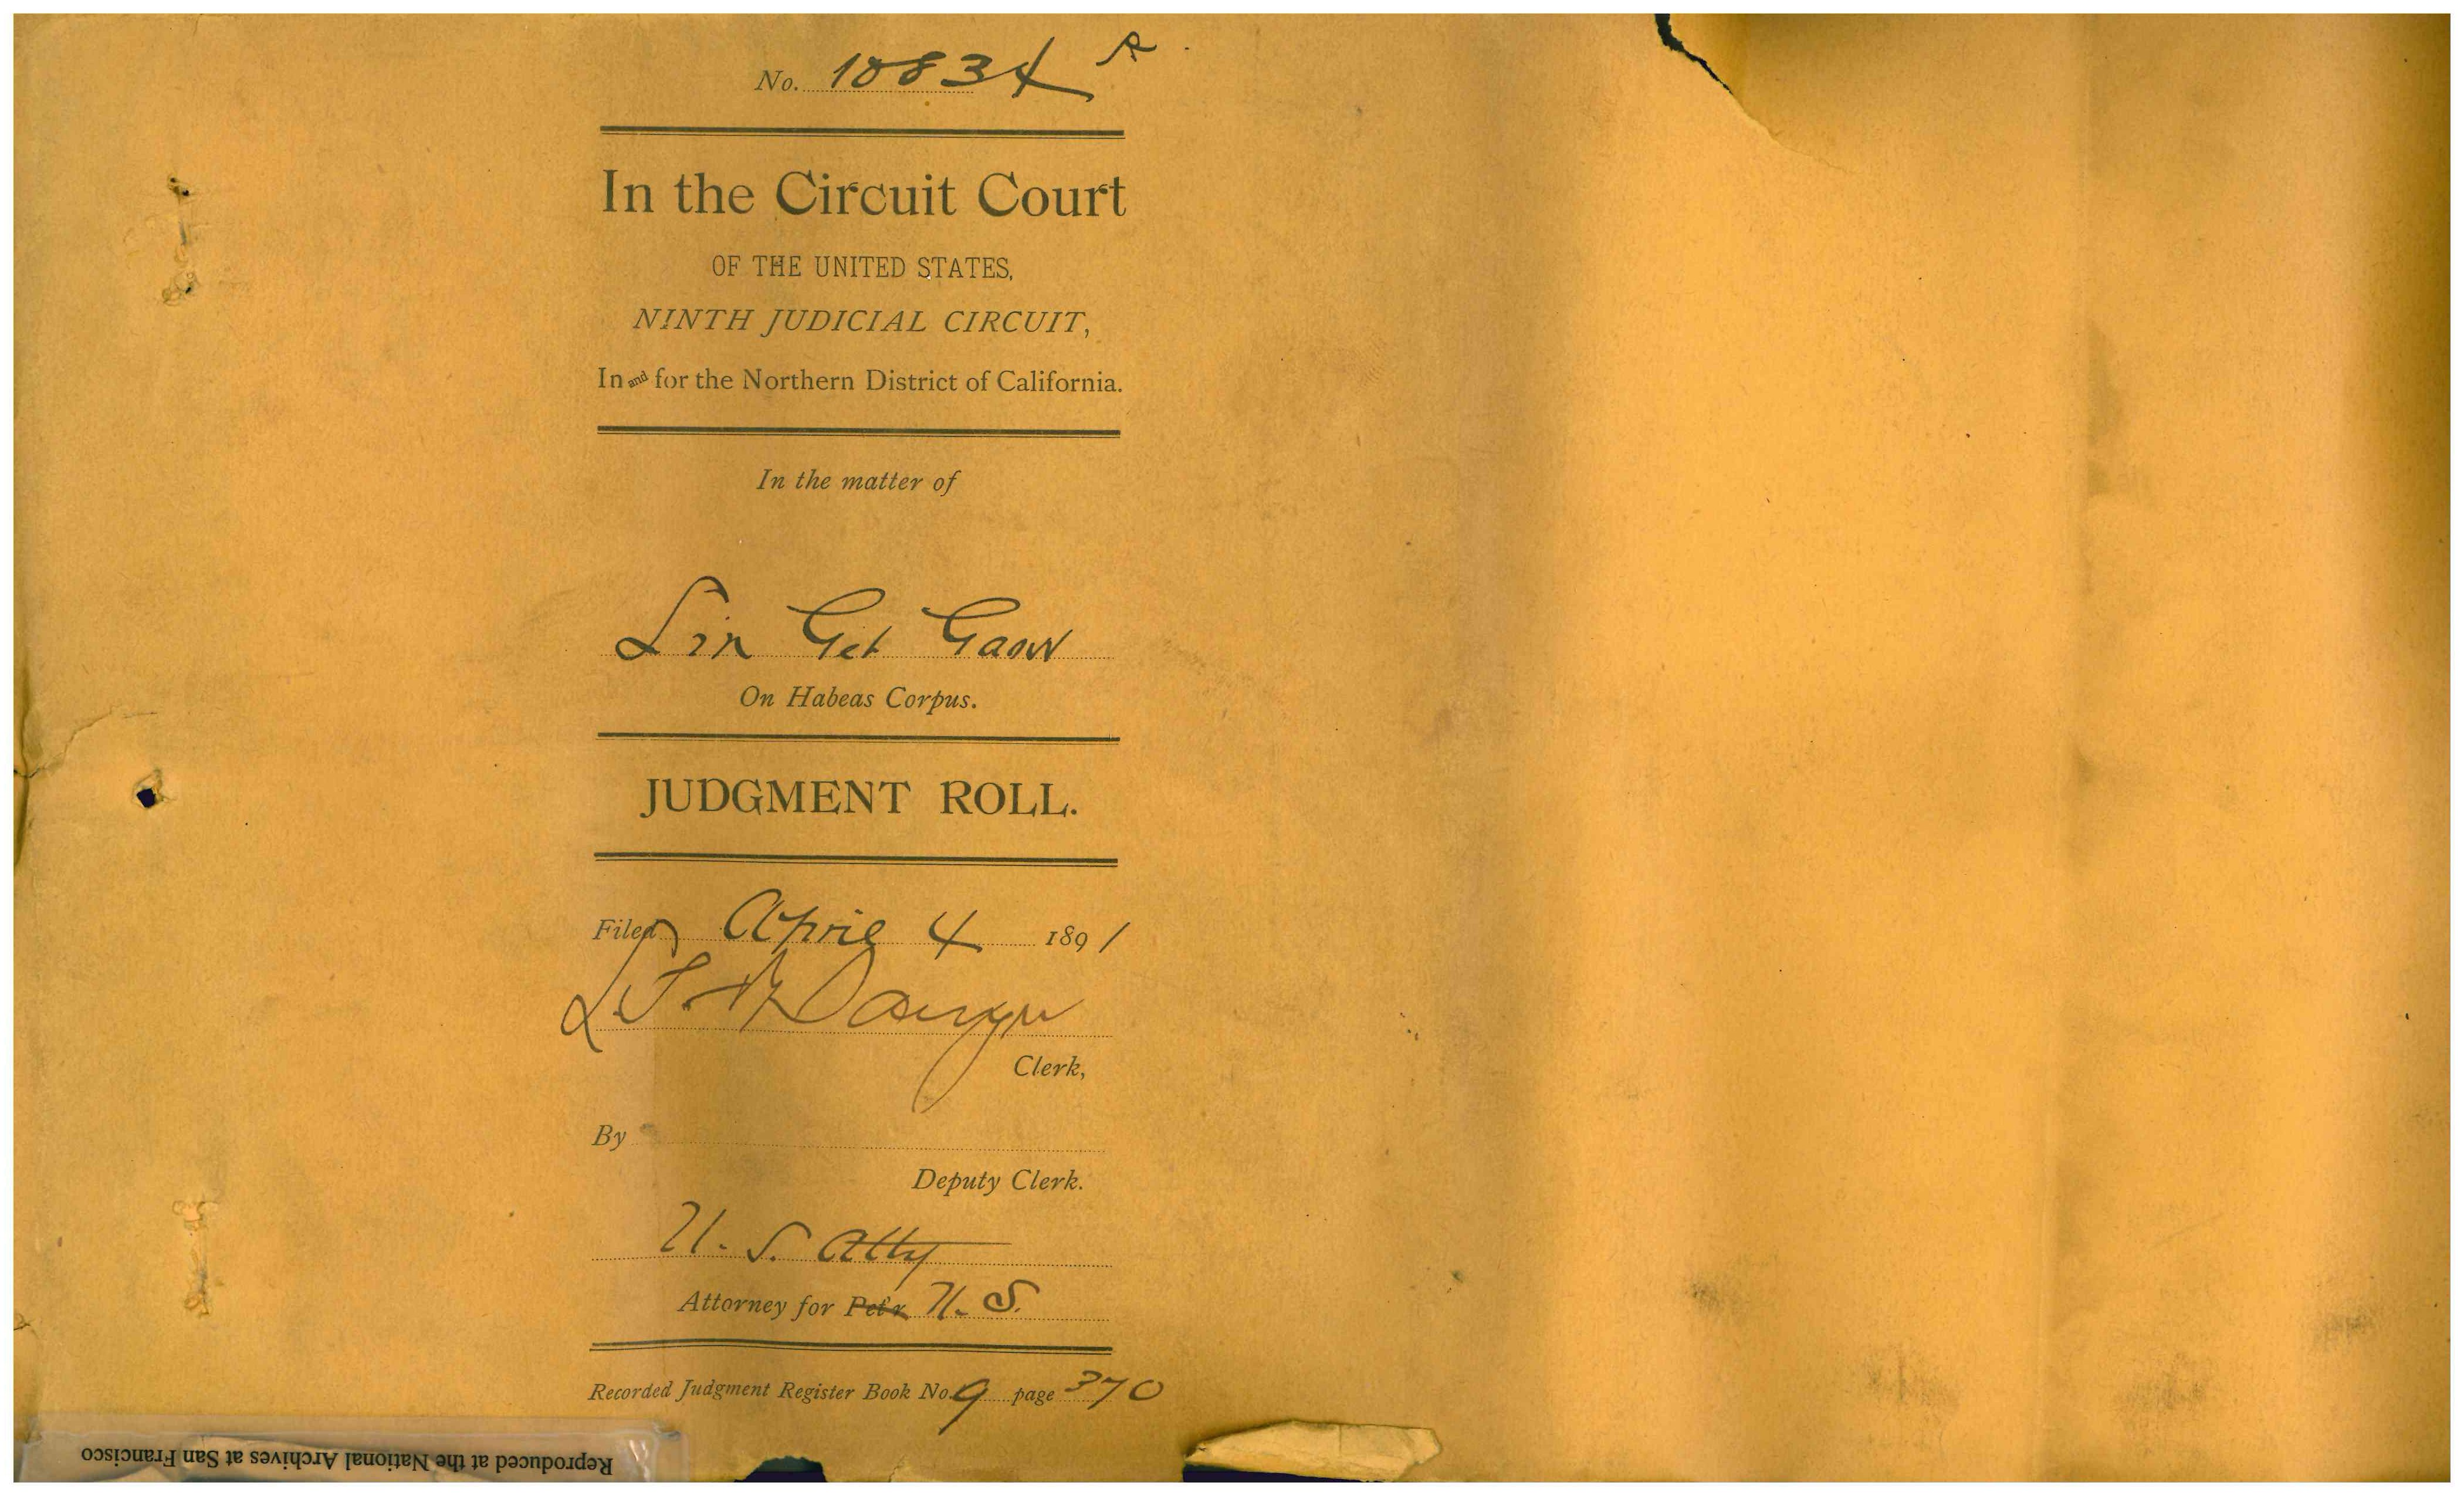 No. 10834 R
In the Circuit Court
OF THE UNITED STATES,
NINTH JUDICIAL CIRCUIT,
In and for the Northern District of California.
In the matter of
Lin Get Gaow
On Habeas Corpus.
JUDGMENT ROLL.
Filed April 4 1891
L.S.B.
Clerk,
By
Deputy Clerk.
U. S. Atty
Attorney for Petr. U. S.
Recorded Judgment Register Book No. 9 page 370
Reproduced at the National Archives at San Francisco